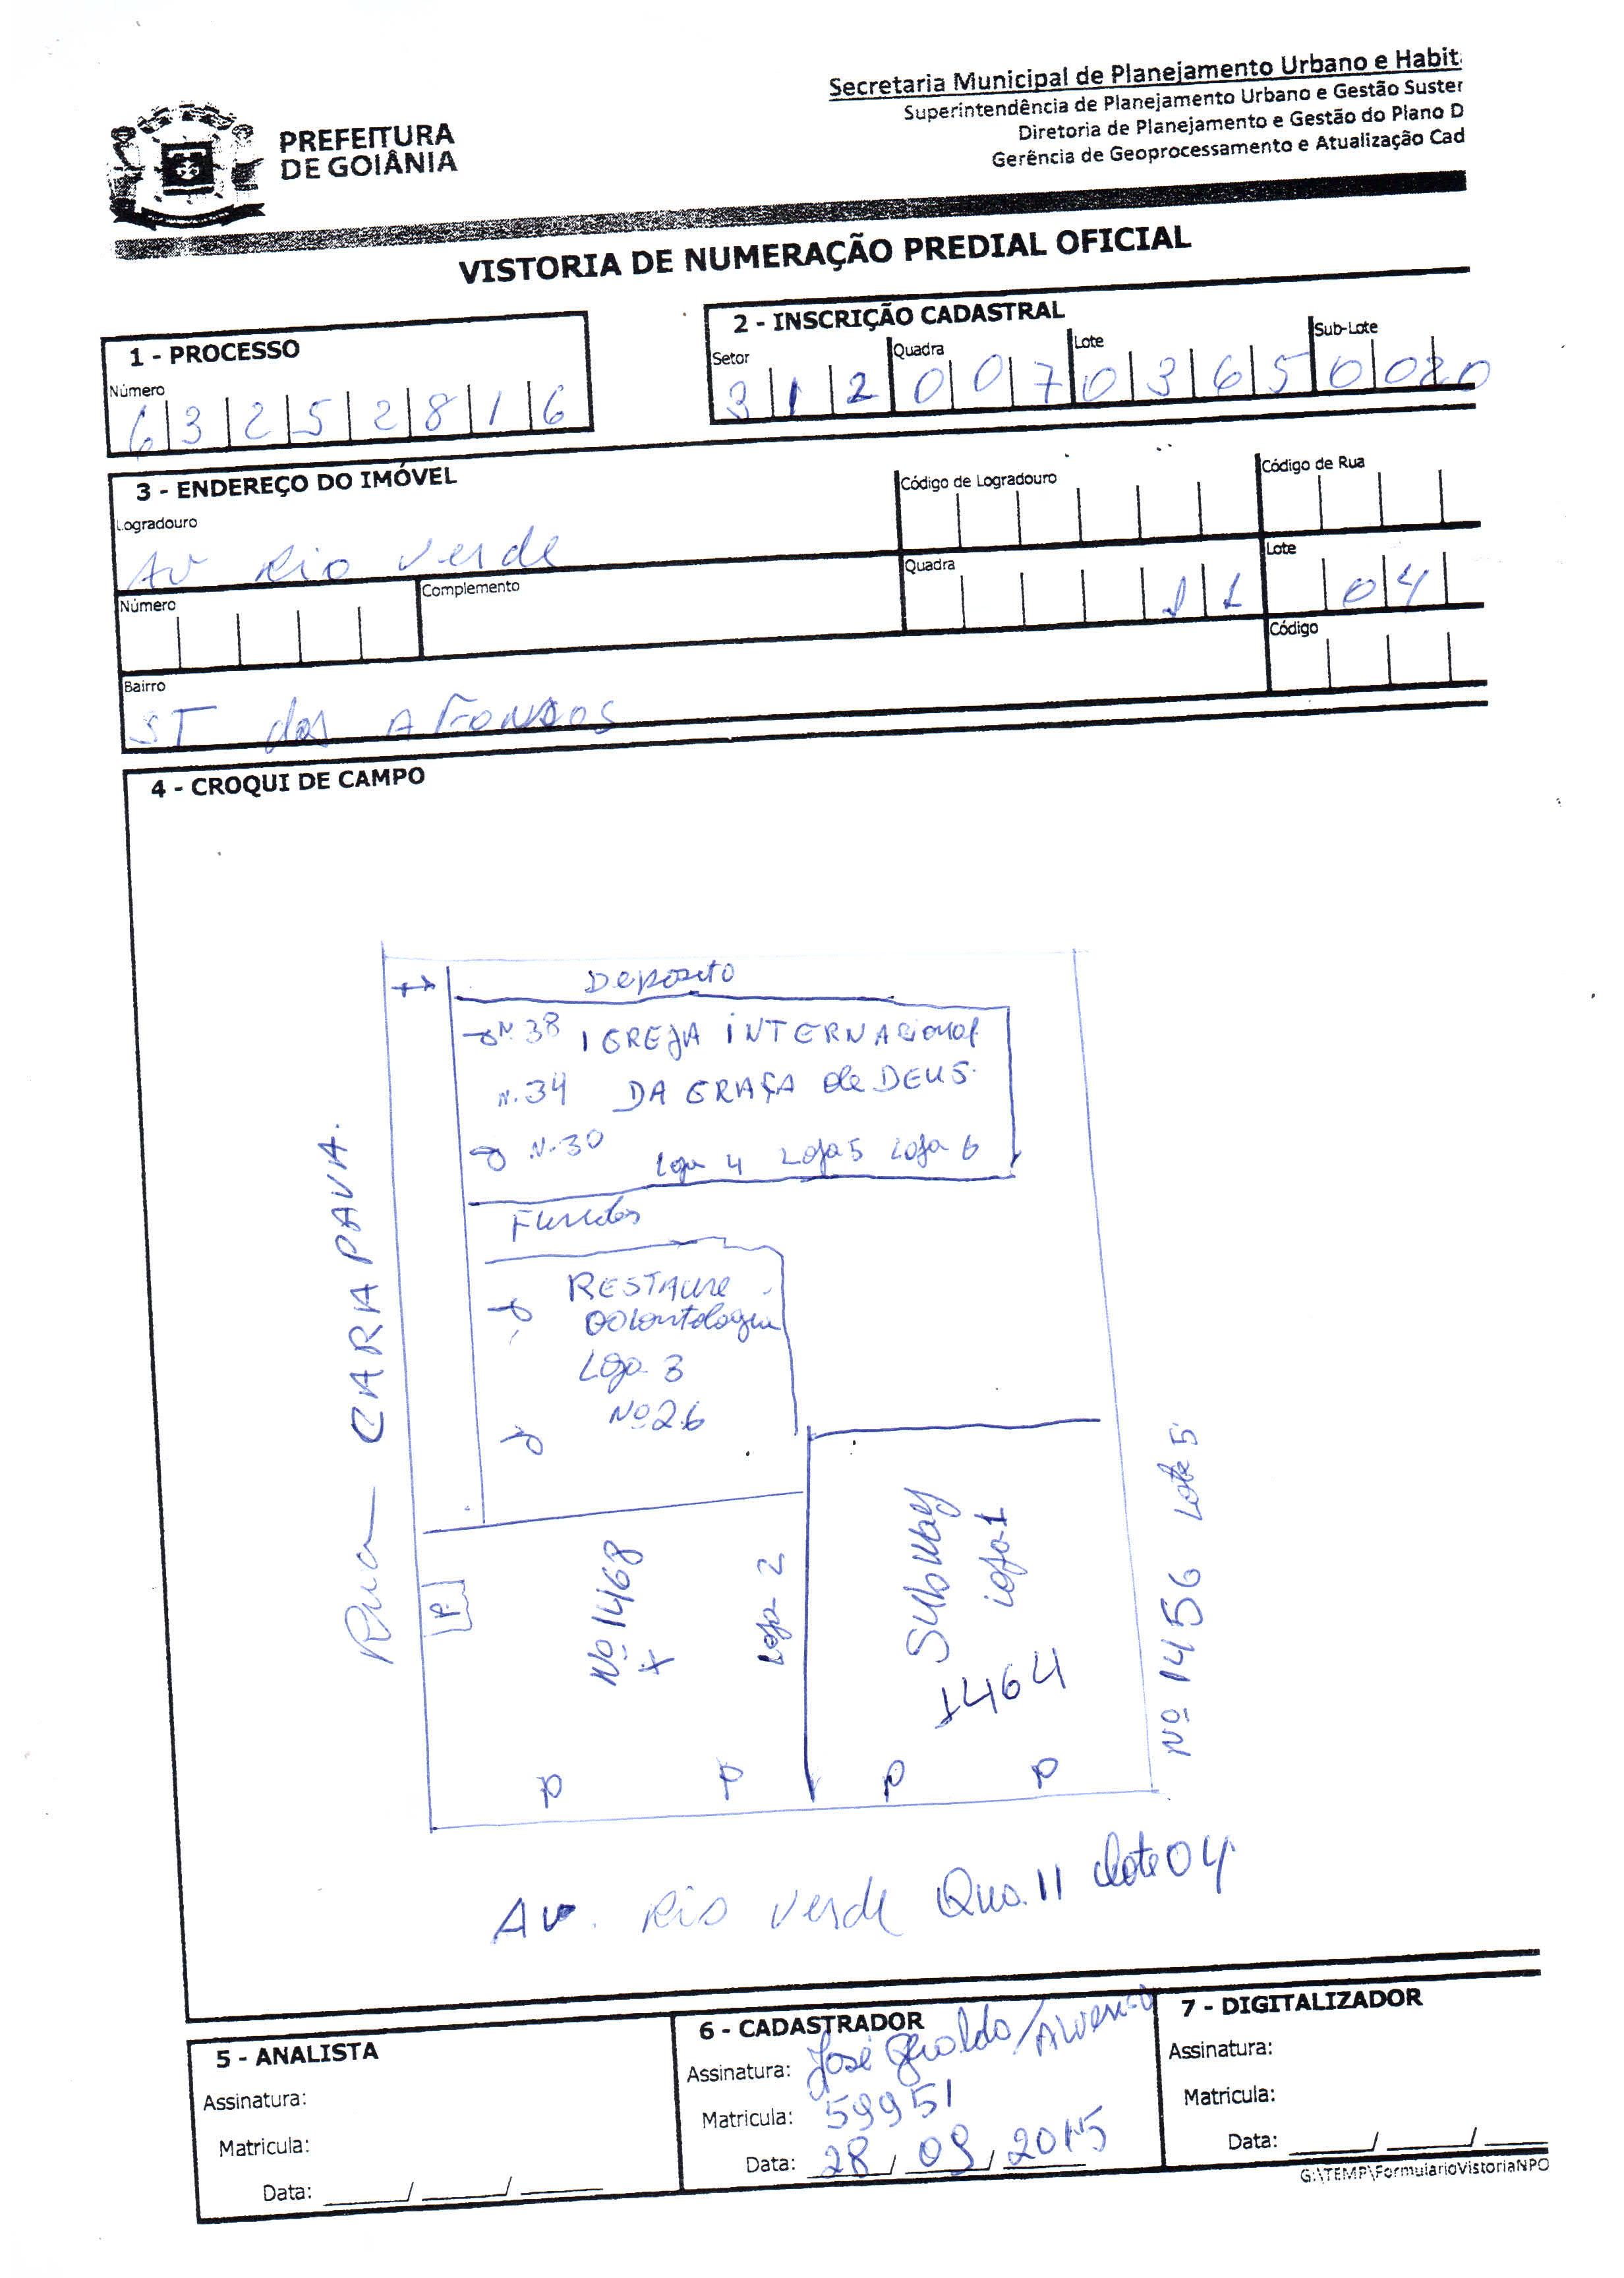 PREFEITURA
DE GOIÂNIA
Secretaria Municipal de Planejamento Urbano e Habit
Superintendência de Planejamento Urbano e Gestão Suster
Diretoria de Planejamento e Gestão do Plano D
Gerência de Geoprocessamento e Atualização Cad
VISTORIA DE NUMERAÇÃO PREDIAL OFICIAL
1 - PROCESSO
Número
6 3 2 5 2 8 1 6
2 - INSCRIÇÃO CADASTRAL
Setor Quadra Lote Sub-Lote
3 1 2 0 0 7 0 3 6 5 0 0
3 - ENDEREÇO DO IMÓVEL
Logradouro
Av Rio Verde
Código de Logradouro
Código de Rua
Número
Complemento
Quadra
1 1
Lote
0 4
Bairro
ST dos AFONSOS
Código
4 - CROQUI DE CAMPO
Deposito
N. 38 IGREJA INTERNAcional
N. 34 DA GRAÇA de DEUS.
N. 30
Loja 4 Loja 5 Loja 6
Fundos
RESTAURE
Odontologia
Loja 3
Nº 26
Rua CARAPAVA.
P.
Nº 1468
Loja 2
Subway
Loja 1
1464
Nº 1456 Lote 5
P P P P
Av. Rio Verde Qua. 11 Lote 04
5 - ANALISTA
Assinatura:
Matricula:
Data: / /
6 - CADASTRADOR
Assinatura: José Geraldo
Matricula: 59951
Data: 28 / 09 / 2015
7 - DIGITALIZADOR
Assinatura:
Matricula:
Data: / /
G:\TEMP\FormularioVistoriaNPO